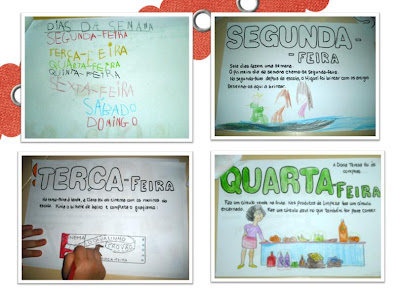 DIAS DA SEMANA
SEGUNDA-FEIRA
TERÇA-FEIRA
QUARTA-FEIRA
QUINTA-FEIRA
SEXTA-FEIRA
SÁBADO
DOMINGO
SEGUNDA-
-FEIRA
Sete dias fazem uma semana
O primeiro dia da semana chama-se segunda-feira.
Na segunda-feira depois da escola, o Miguel foi brincar com os amigos
Desenha-os aqui a brincar.
TERÇA-FEIRA
Na terça-feira à tarde, a Clara foi ao cinema com os meninos da
escola. Pinta o bilhete de balões e completa o
QUARTA
FEIRA
A Dona Teresa foi às
compras.
Faz um círculo verde, na fruta. Nos produtos de limpeza faz um círculo
encarnado. Faz um círculo azul no que também faz